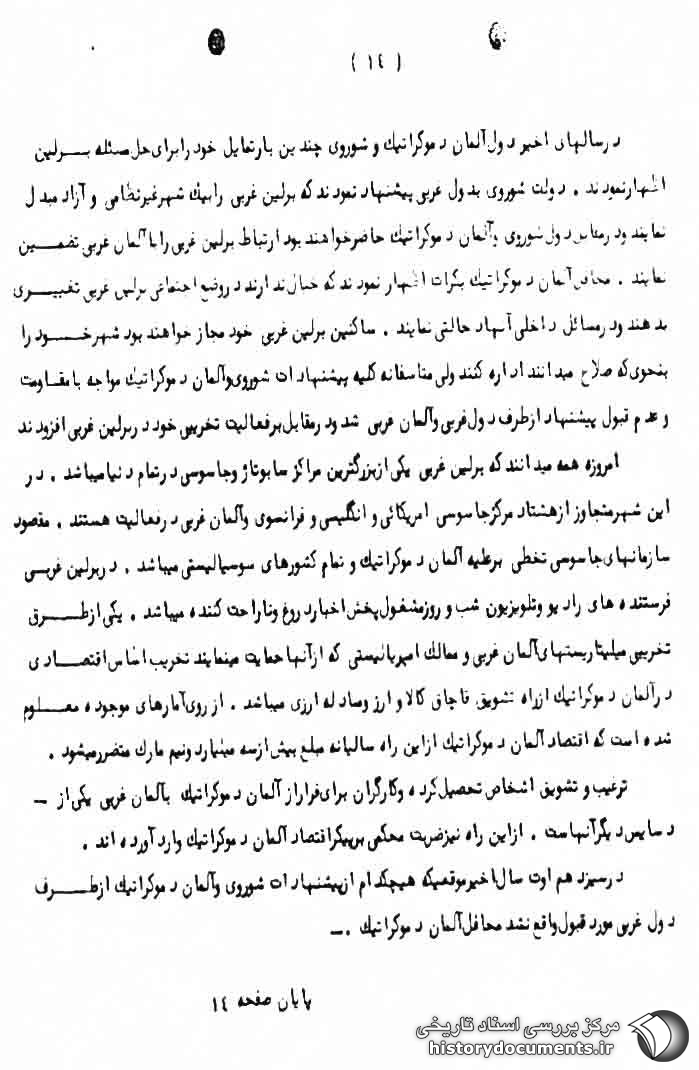 ( ١٤ )
در سالهای اخیر دول آلمان دموکراتیك و شوروی چندین بار تمایل خود را برای حل مسئله برلین
اظهار نمودند . دولت شوروی بدول غربی پیشنهاد نمودند که برلین غربی را بیك شهر غیرنظامی و آزاد مبدل
نمایند و در مقابل دول شوروی وآلمان دموکراتیك حاضر خواهند بود ارتباط برلین غربی را با آلمان غربی تضمین
نمایند . محافل آلمان دموکراتیك بکرات اظهار نمودند که خیال ندارند در وضع اجتماعی برلین غربی تغییری
بدهند و در مسائل داخلی آنها دخالتی نمایند . ساکنین برلین غربی خود مجاز خواهند بود شهر خود را
بنحوی که صلاح میدانند اداره کنند ولی متاسفانه کلیه پیشنهادات شوروی وآلمان دموکراتیك مواجه با مقاومت
و عدم قبول پیشنهاد از طرف دول غربی وآلمان غربی شد و در مقابل بر فعالیت تخریبی خود در برلین غربی افزودند
امروزه همه میدانند که برلین غربی یکی از بزرگترین مراکز سابوتاژ وجاسوسی در تمام دنیا میباشد . در
این شهر متجاوز از هشتاد مرکز جاسوسی امریکائی و انگلیسی و فرانسوی وآلمان غربی در فعالیت هستند . مقصود
سازمانهای جاسوسی تخطی برعلیه آلمان دموکراتیك و تمام کشورهای سوسیالیستی میباشد . در برلین غربی
فرستنده های رادیو وتلویزیون شب و روز مشغول پخش اخبار دروغ وناراحت کننده میباشد . یکی از طرق
تخریبی میلیتاریستهای آلمان غربی و ممالك امپریالیستی که از آنها حمایت مینمایند تخریب اساس اقتصادی
در آلمان دموکراتیك از راه تشویق قاچاق کالا و ارز ومبادله ارزی میباشد . از روی آمارهای موجوده معلوم
شده است که اقتصاد آلمان دموکراتیك از این راه سالیانه مبلغ بیش از سه میلیارد ونیم مارك متضرر میشود .
ترغیب و تشویق اشخاص تحصیل کرده وکارگران برای فرار از آلمان دموکراتیك بآلمان غربی یکی از –
دسایس دیگر آنهاست . از این راه نیز ضربت محکمی بر پیکر اقتصاد آلمان دموکراتیك وارد آورده اند .
در سیزدهم اوت سال اخیر موقعیکه هیچکدام از پیشنهادات شوروی وآلمان دموکراتیك از طرف
دول غربی مورد قبول واقع نشد محافل آلمان دموکراتیك .–
پایان صفحه ١٤
مرکز بررسی اسناد تاریخی
historydocuments.ir